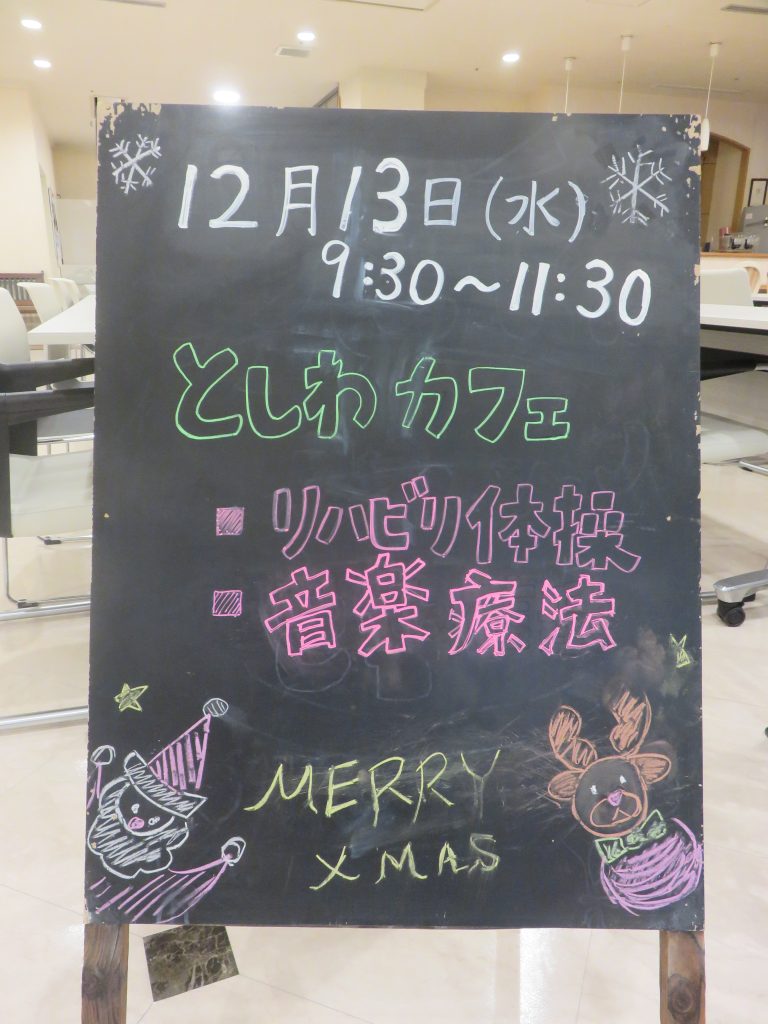 12月13日(水)
9:30～11:30
としわカフェ
■ リハビリ体操
■ 音楽療法
MERRY
XMAS